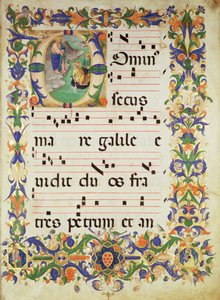 Domin
secus
ma re galilee e
vidit duos fra
tres petrum et an